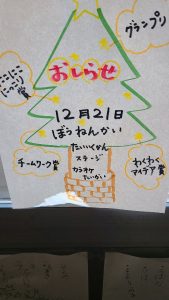 グランプリ
にこにこ
びっくり賞
おしらせ
12月21日
ぼうねんかい
たいいくかん
ステージ
カラオケ
たいかい
チームワーク賞
わくわく
アイデア賞